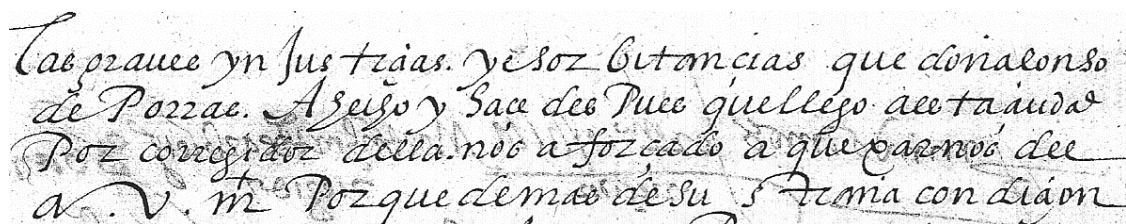 las graues yn Justicias. y esorbitancias que don alonso
de Porras. A hecho y hace des Pues que llego a esta ciudad
Por corregidor della. nos a forçado a quexarnos del
a. V. m Porque demas de su s traña condicion